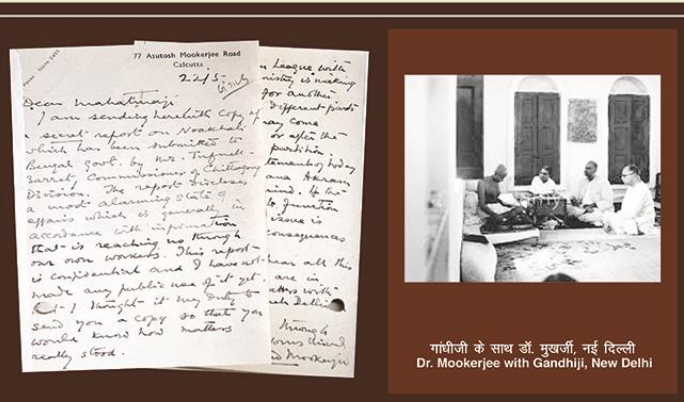 77 Asutosh Mookerjee Road
Calcutta
22/5
Dear Mahatmaji
I am sending herewith copy of
a secret report on Noakhali
which has been submitted to
Bengal Govt. by Mr.
Barret, Commissioner of Chittagong
Division. The report discloses
a most alarming state of
affairs which is generally in
accordance with information
that is reaching us through
our own workers. This report
is confidential and I have not
made any public use of it yet.
I thought it my duty to
send you a copy so that you
would know how matters
really stood.
League with
is making
for another
different parts
may come
or after the
partition.
today
Akram
mind. If the
to function
issue is
consequences
hear all this
are in
with
Delhi
Mookerjee
गांधीजी के साथ डॉ. मुखर्जी, नई दिल्ली
Dr. Mookerjee with Gandhiji, New Delhi